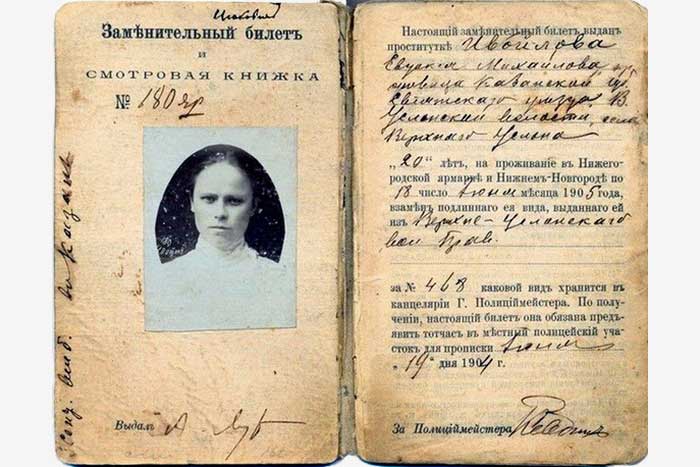 Замѣнительный билетъ
и
СМОТРОВАЯ КНИЖКА
№ 180 яр
Выдалъ
Настоящій замѣнительный билетъ выданъ
проституткѣ Ивойлова
Евдокія Михайлова, кр
Казанской гу.
уѣзда, В.
Услонской волости, села
Верхняго Услона
„20" лѣтъ, на проживаніе въ Нижего-
родской ярмаркѣ и Нижнемъ-Новгородѣ по
18 число Іюня мѣсяца 1905 года,
взамѣнъ подлиннаго ея вида, выданнаго ей
изъ Верхне-Услонскаго
вол. Прав.
за № 468 каковой видъ хранится въ
канцеляріи Г. Полиціймейстера. По полу-
ченіи, настоящій билетъ она обязана предъ-
явить тотчасъ въ мѣстный полицейскій уча-
стокъ для прописки Іюня
„19" дня 1904 г.
За Полиціймейстера